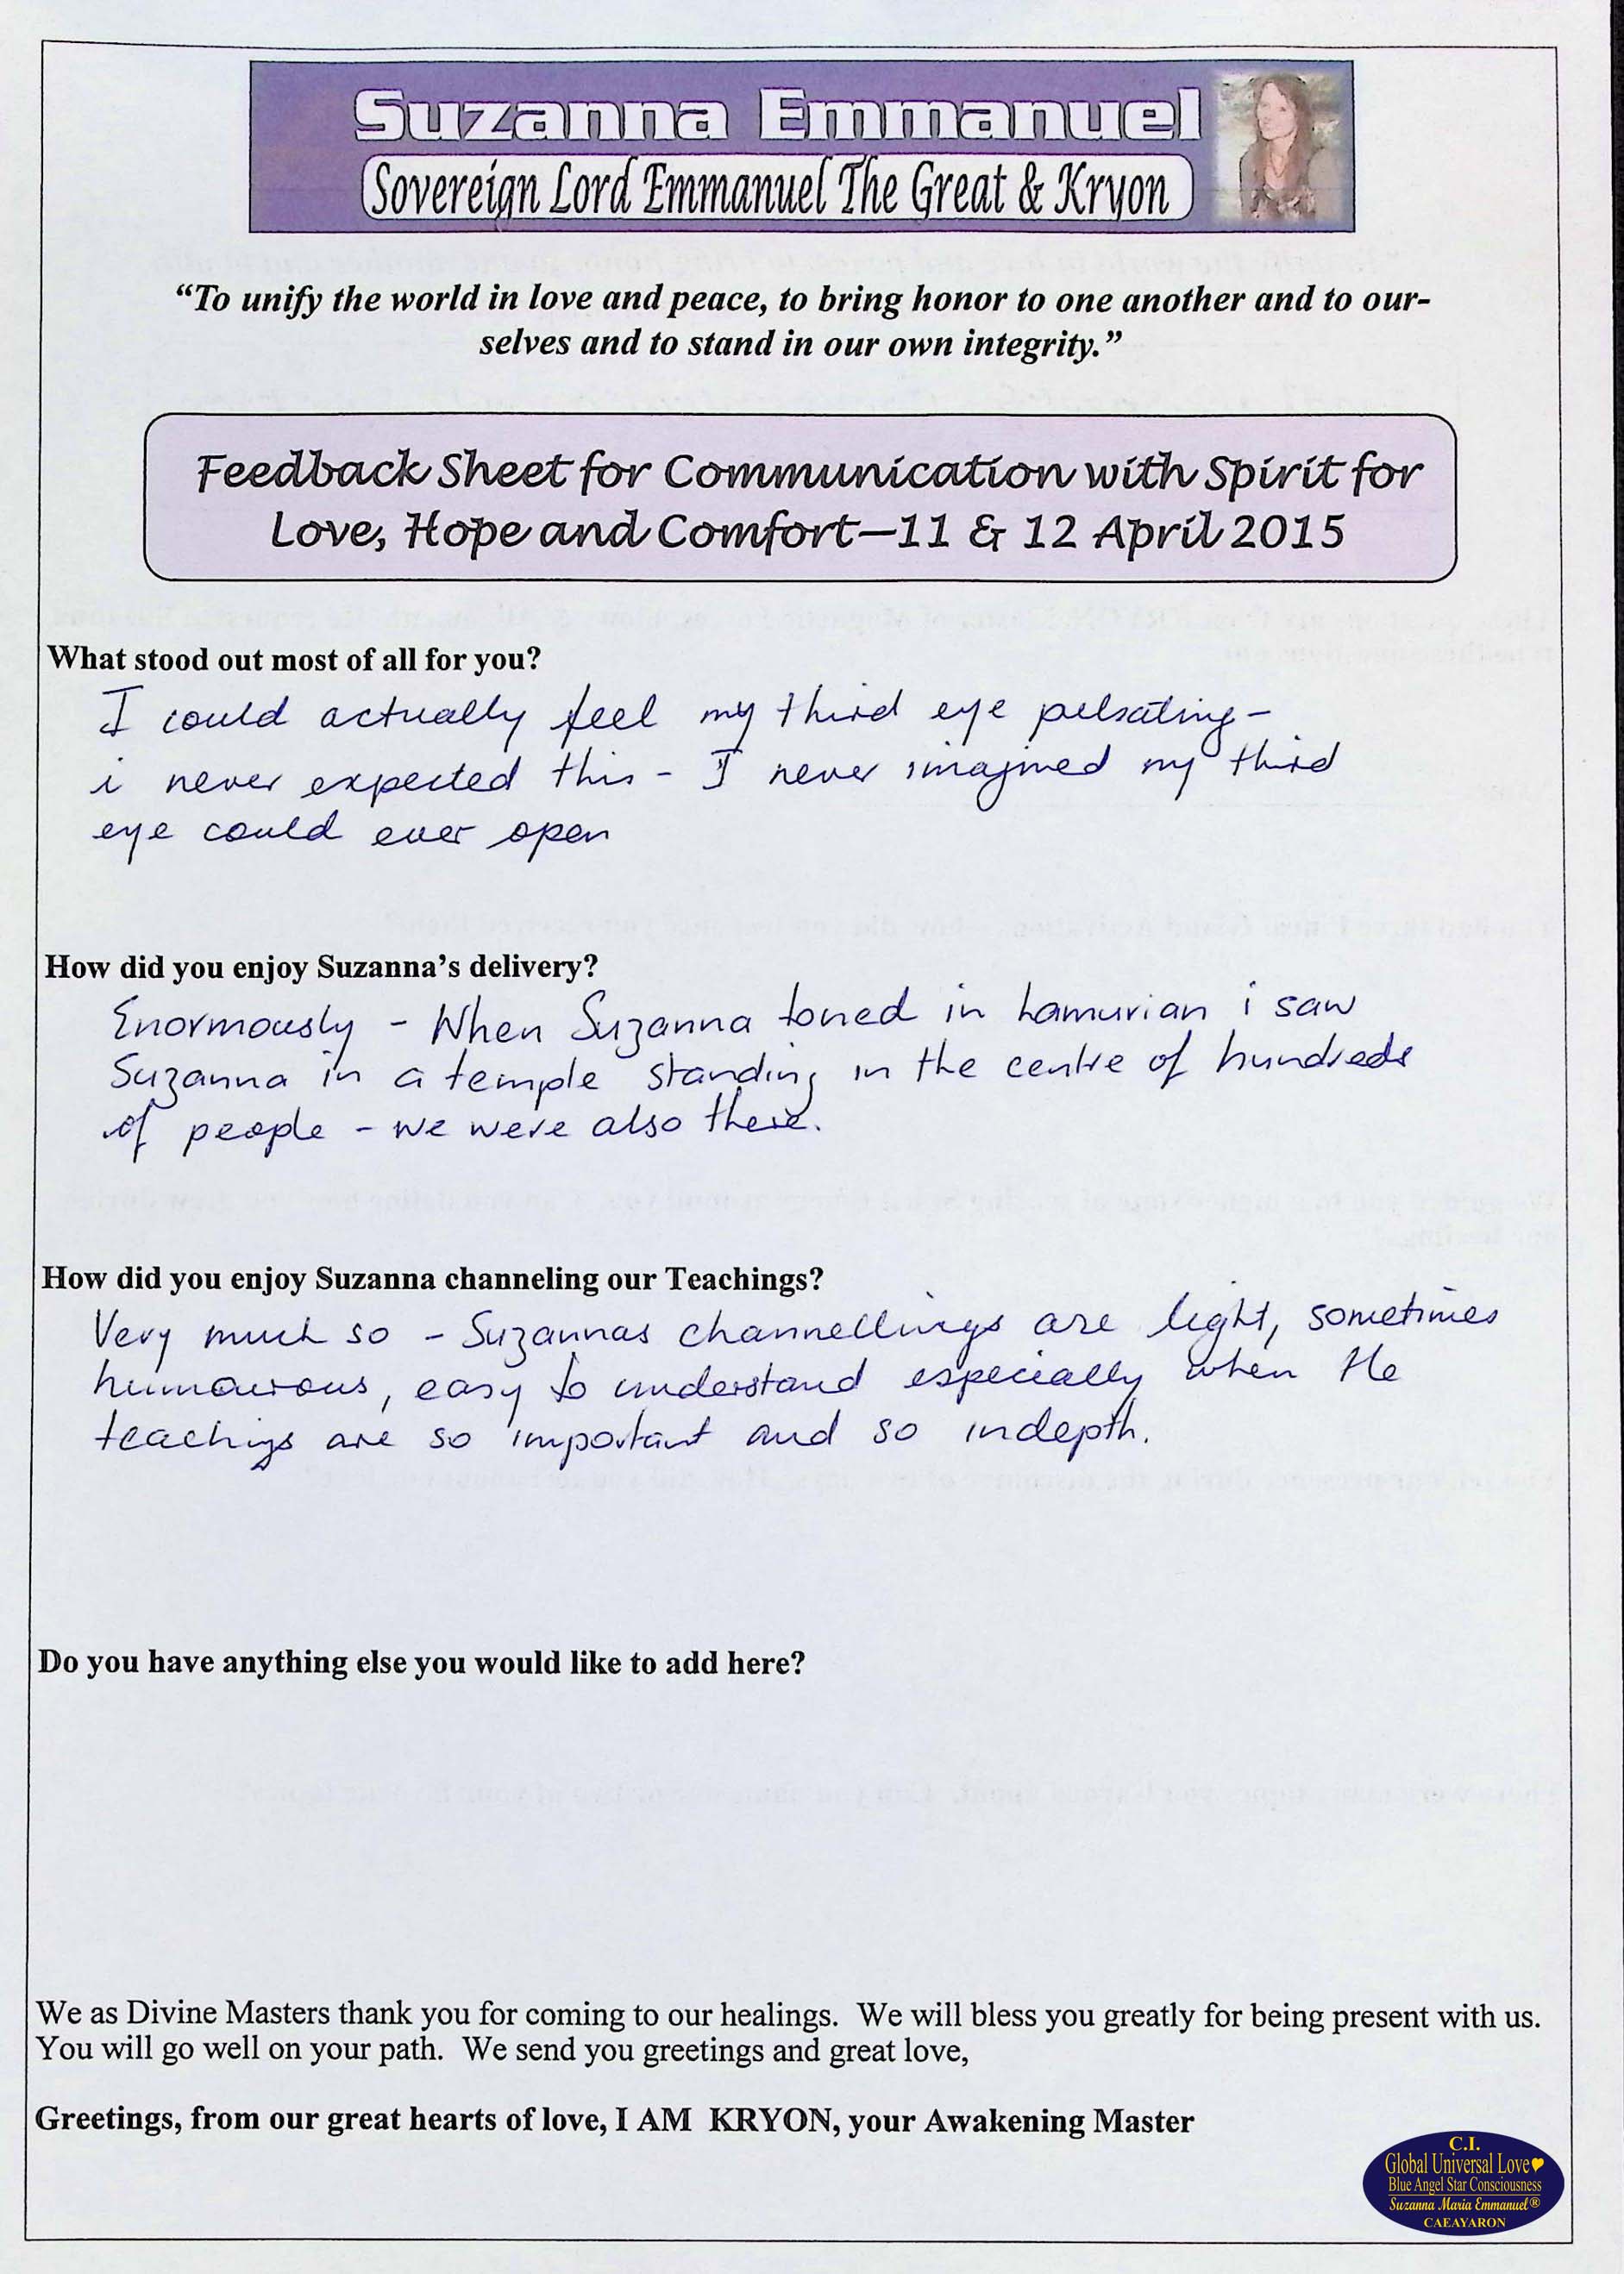 Suzanna Emmanuel
Sovereign Lord Emmanuel The Great & Kryon
“To unify the world in love and peace, to bring honor to one another and to our-
selves and to stand in our own integrity.”
Feedback Sheet for Communication with Spirit for
Love, Hope and Comfort—11 & 12 April 2015
What stood out most of all for you?
I could actually feel my third eye pulsating -
i never expected this - I never imagined my third
eye could ever open
How did you enjoy Suzanna’s delivery?
Enormously - When Suzanna toned in Lamurian i saw
Suzanna in a temple standing in the centre of hundreds
of people - we were also there.
How did you enjoy Suzanna channeling our Teachings?
Very much so - Suzannas channellings are light, sometimes
humourous, easy to understand especially when the
teachings are so important and so indepth.
Do you have anything else you would like to add here?
We as Divine Masters thank you for coming to our healings. We will bless you greatly for being present with us.
You will go well on your path. We send you greetings and great love,
Greetings, from our great hearts of love, I AM KRYON, your Awakening Master
C.I.
Global Universal Love
Blue Angel Star Consciousness
Suzanna Maria Emmanuel®
CAEAYARON